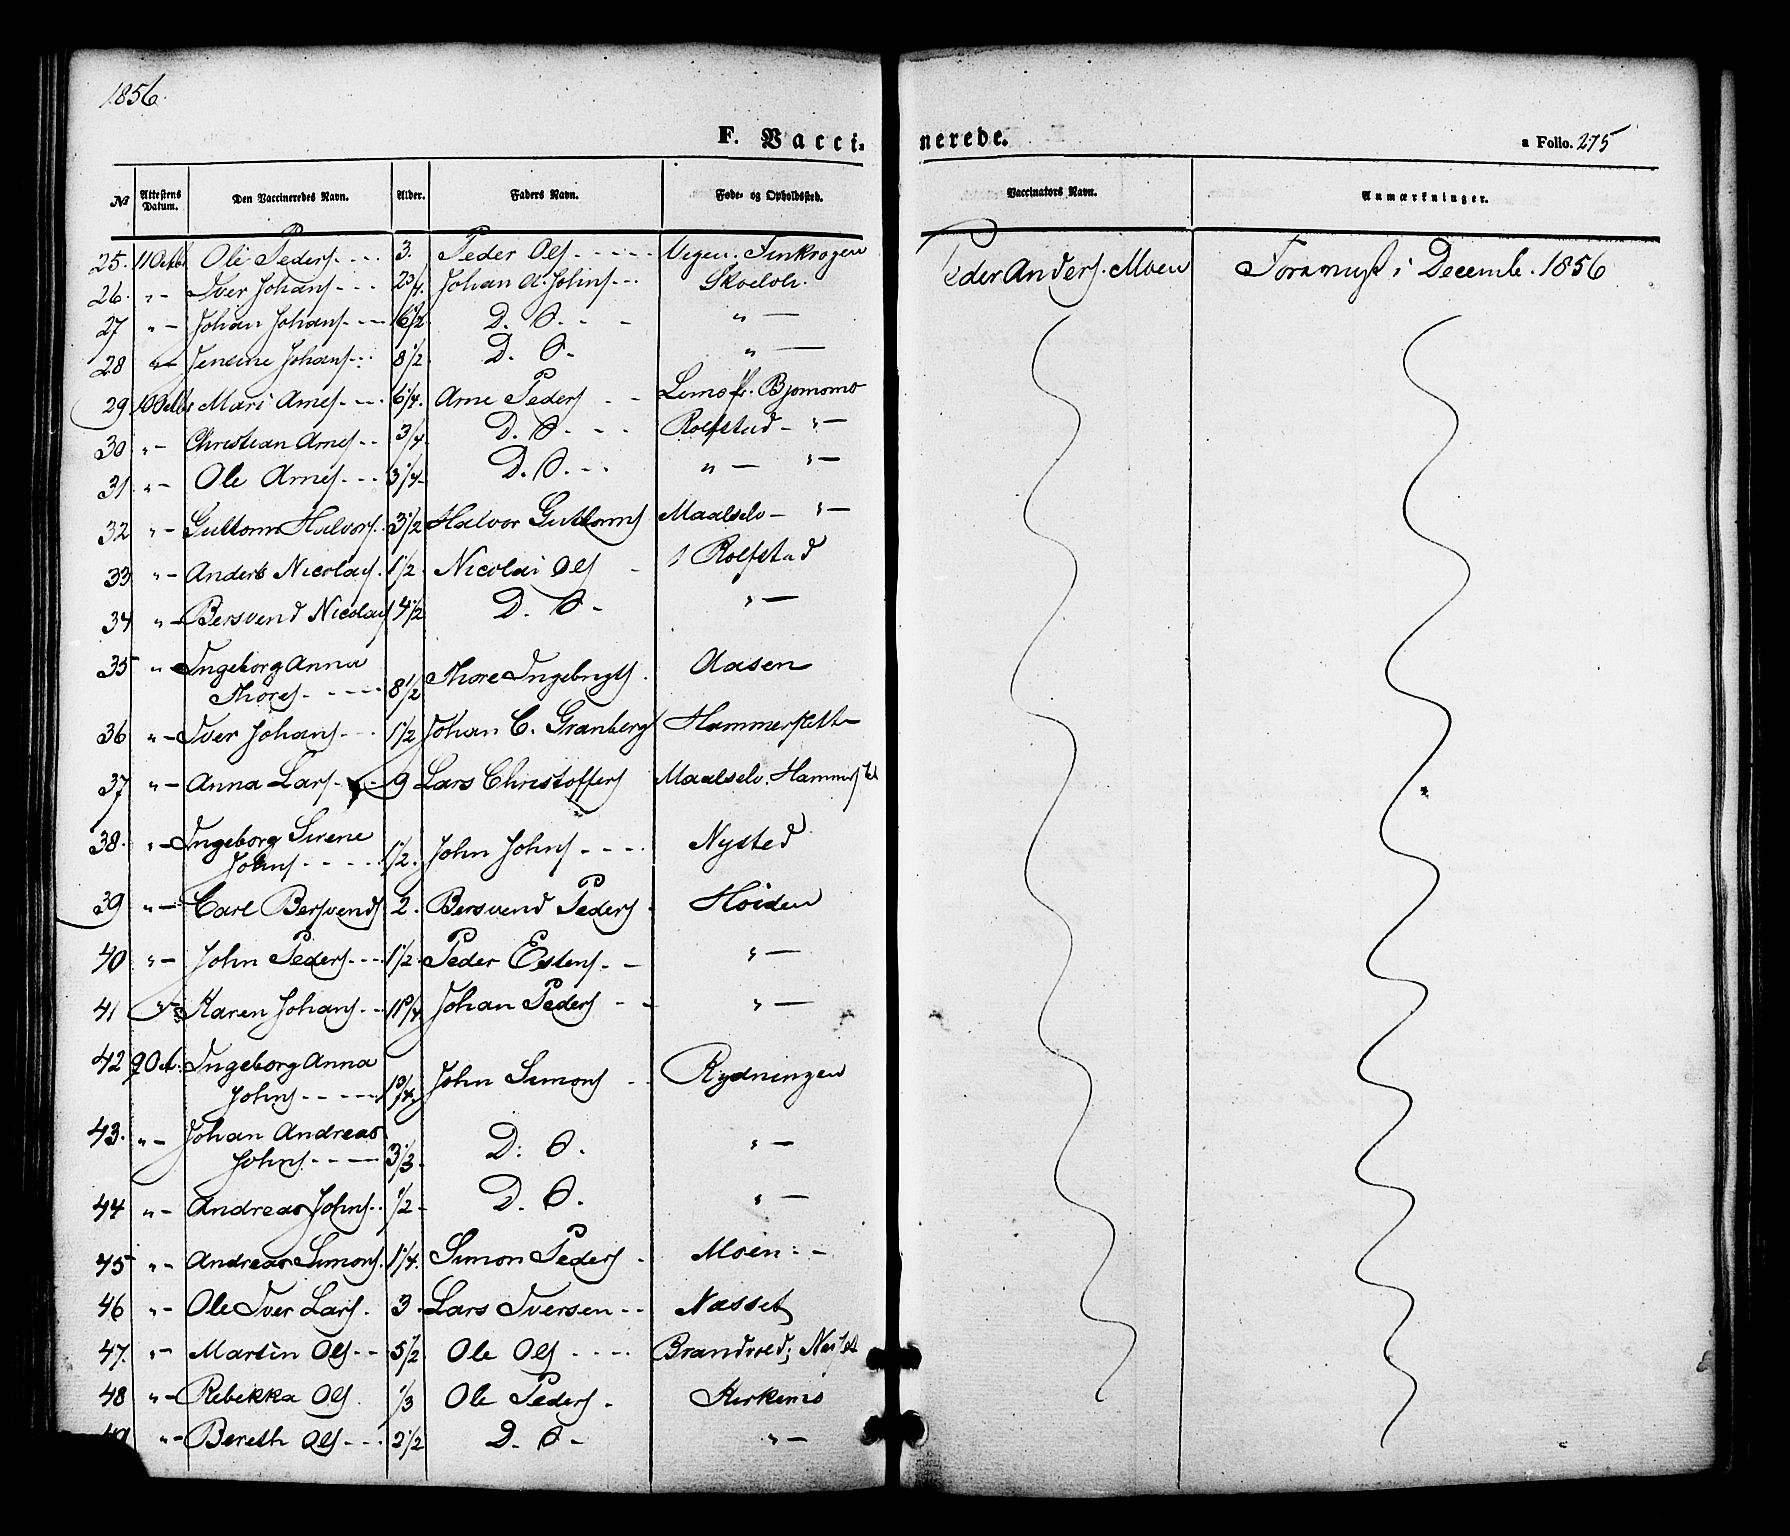 1856
F. Vacci-
nerede.
a Folio. 275
No
Attestens Datum.
Den Vaccineredes Navn.
Alder.
Faders Navn.
Føde- og Opholdssted.
Vaccinators Navn.
Anmærkninger.
25. 11 Octbr Ole Peders. 3. Peder Ols Peder Anders. Moen Foranmst i Decemb. 1856
26. " - Iver Johans 2 3/4. Johan A. Johns
27 " - Johan Johans 6 1/2 D. O.  " -
28 " - Jensine Johans 8 1/2 D. O.  " -
29 Mari Arnes 6 1/4. Arne Peders
30 " - Christian Arnes 3/4 D. O. Rolfstad - " -
31 " - Ole Arnes 3 1/4 D. O. " - " -
32 " - Guttorm Halvors. 3 1/2 Halvor Guttorms Maalselv - " -
33 " - Anders Nicolais. 1 1/2. Nicolai Ols - Rolfstad
34 " - Bersvend Nicolais 4 1/2 D. O. - " -
35 " - Ingeborg Anna
Thores. 8 1/2 Thore Ingebrigts. Aasen
36 " - Iver Johans 1 1/2 Johan C. Granberg
37 " - Anna Lars 9 Lars Christoffers Maalselv.
38. " - Ingeborg Sirene
Johns 1 1/2. John Johns Nysted
39 " - Carl Bersvends 2. Bersvend Peders Høiden
40 " - John Peders 1 1/2. Peder Estens. - " -
41 Karen Johans Johan Peders - - " -
42 Ingeborg Anna
Johns John Simons Rydningen
43. " - Johan Andreas
Johns 3 1/3. D: O. " -
44 " - Andreas Johns. 1/2 - D. O. " -
45 " - Andreas Simons. 1 1/4. Simon Peders Moen
46 " - Ole Iver Lars. 3 Lars Iversen Næsset
47. " - Martin Ols 5 1/2 Ole Ols
48 " - Rebekka Ols. 1/3 Ole Peders. Kirkemo
49 " - Bereth Ols 2 1/2 D. O - " -